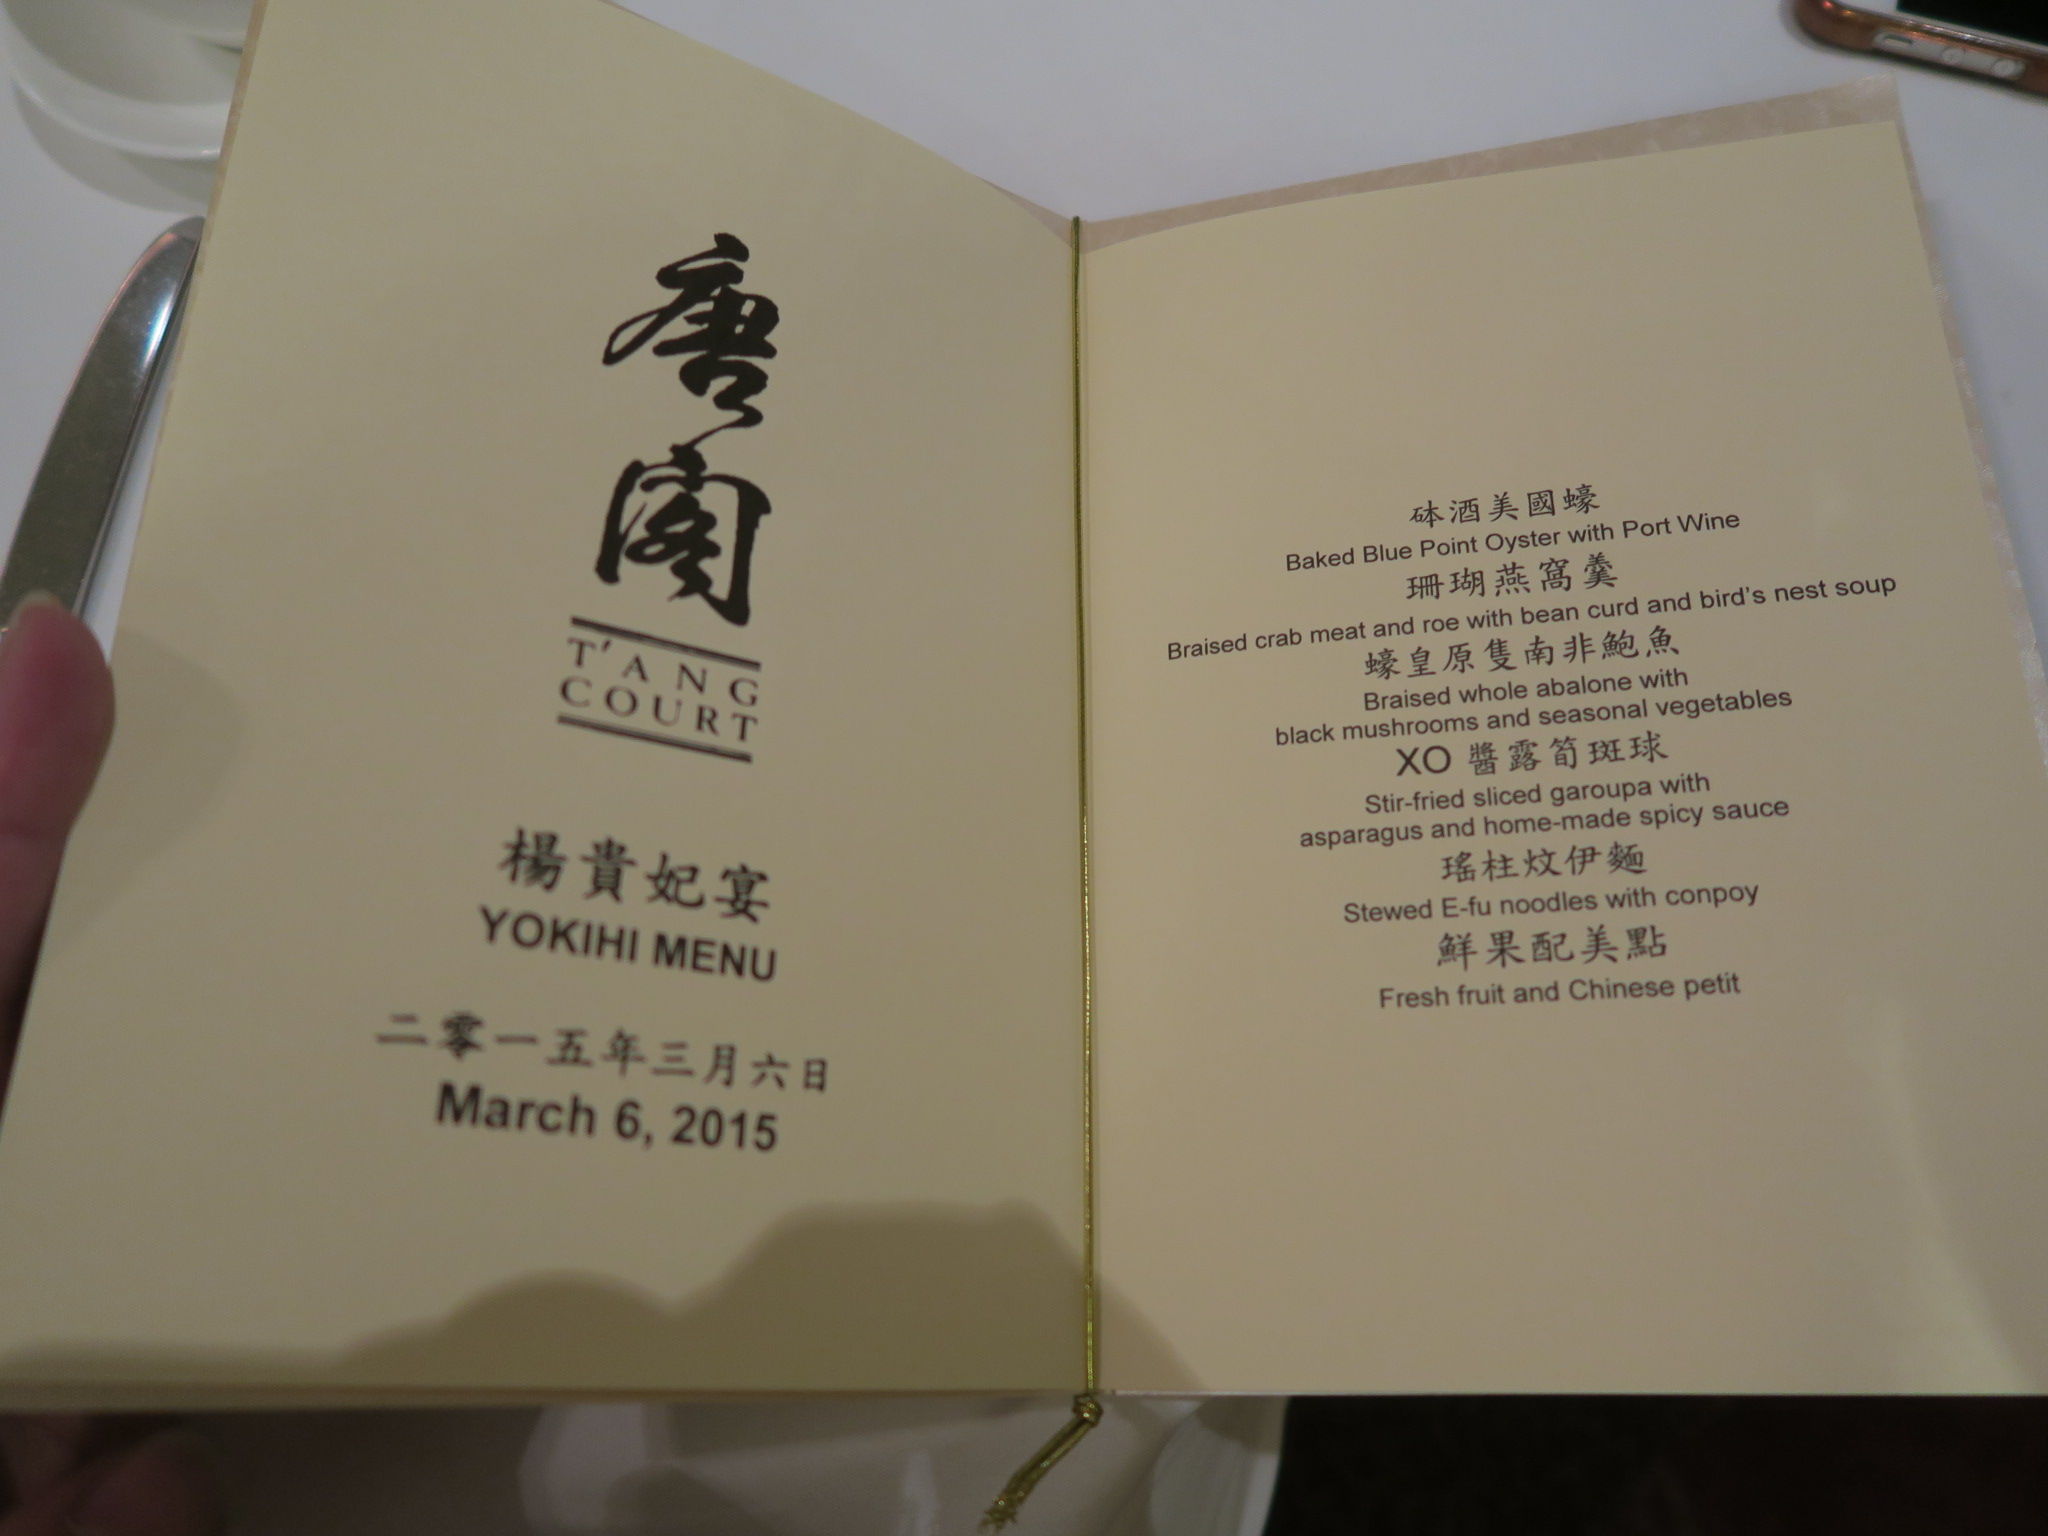 唐閣
T'ANG
COURT
楊貴妃宴
YOKIHI MENU
二零一五年三月六日
March 6, 2015
砵酒美國蠔
Baked Blue Point Oyster with Port Wine
珊瑚燕窩羹
Braised crab meat and roe with bean curd and bird's nest soup
蠔皇原隻南非鮑魚
Braised whole abalone with
black mushrooms and seasonal vegetables
XO 醬露筍斑球
Stir-fried sliced garoupa with
asparagus and home-made spicy sauce
瑤柱炆伊麵
Stewed E-fu noodles with conpoy
鮮果配美點
Fresh fruit and Chinese petit